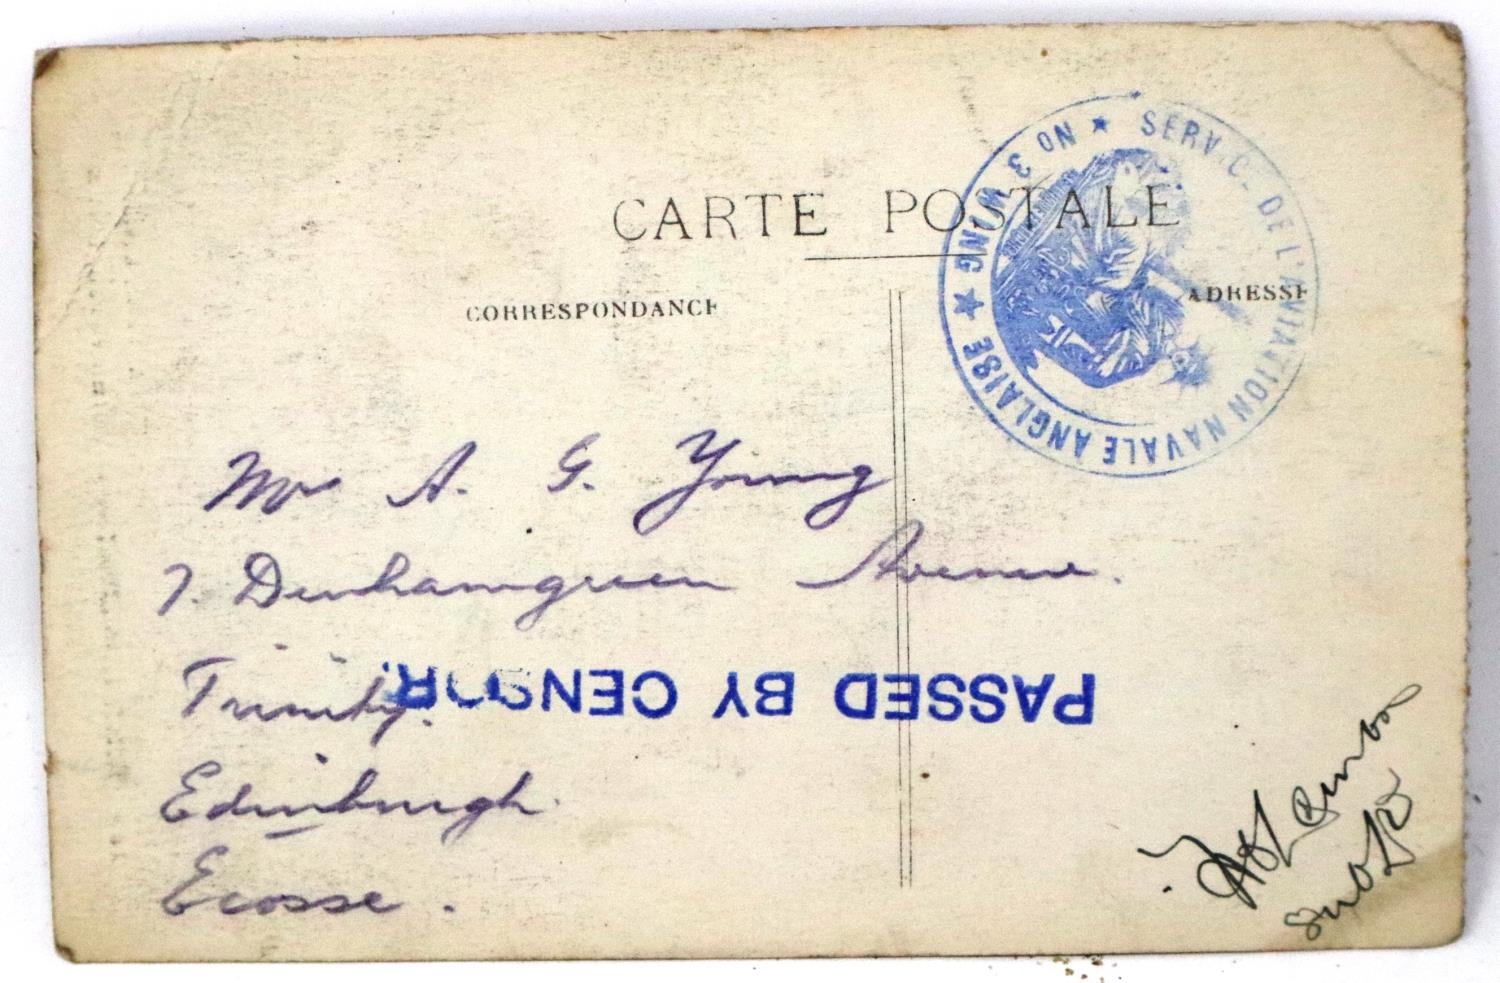 CARTE POSTALE
CORRESPONDANCE
ADRESSE
NO 3 WING ★ SERVICE DE L'AVIATION NAVALE ANGLAISE ★
Mr A. G. Young
7. Denhamgreen Avenue.
Trinity.
Edinburgh.
Ecosse.
PASSED BY CENSOR.